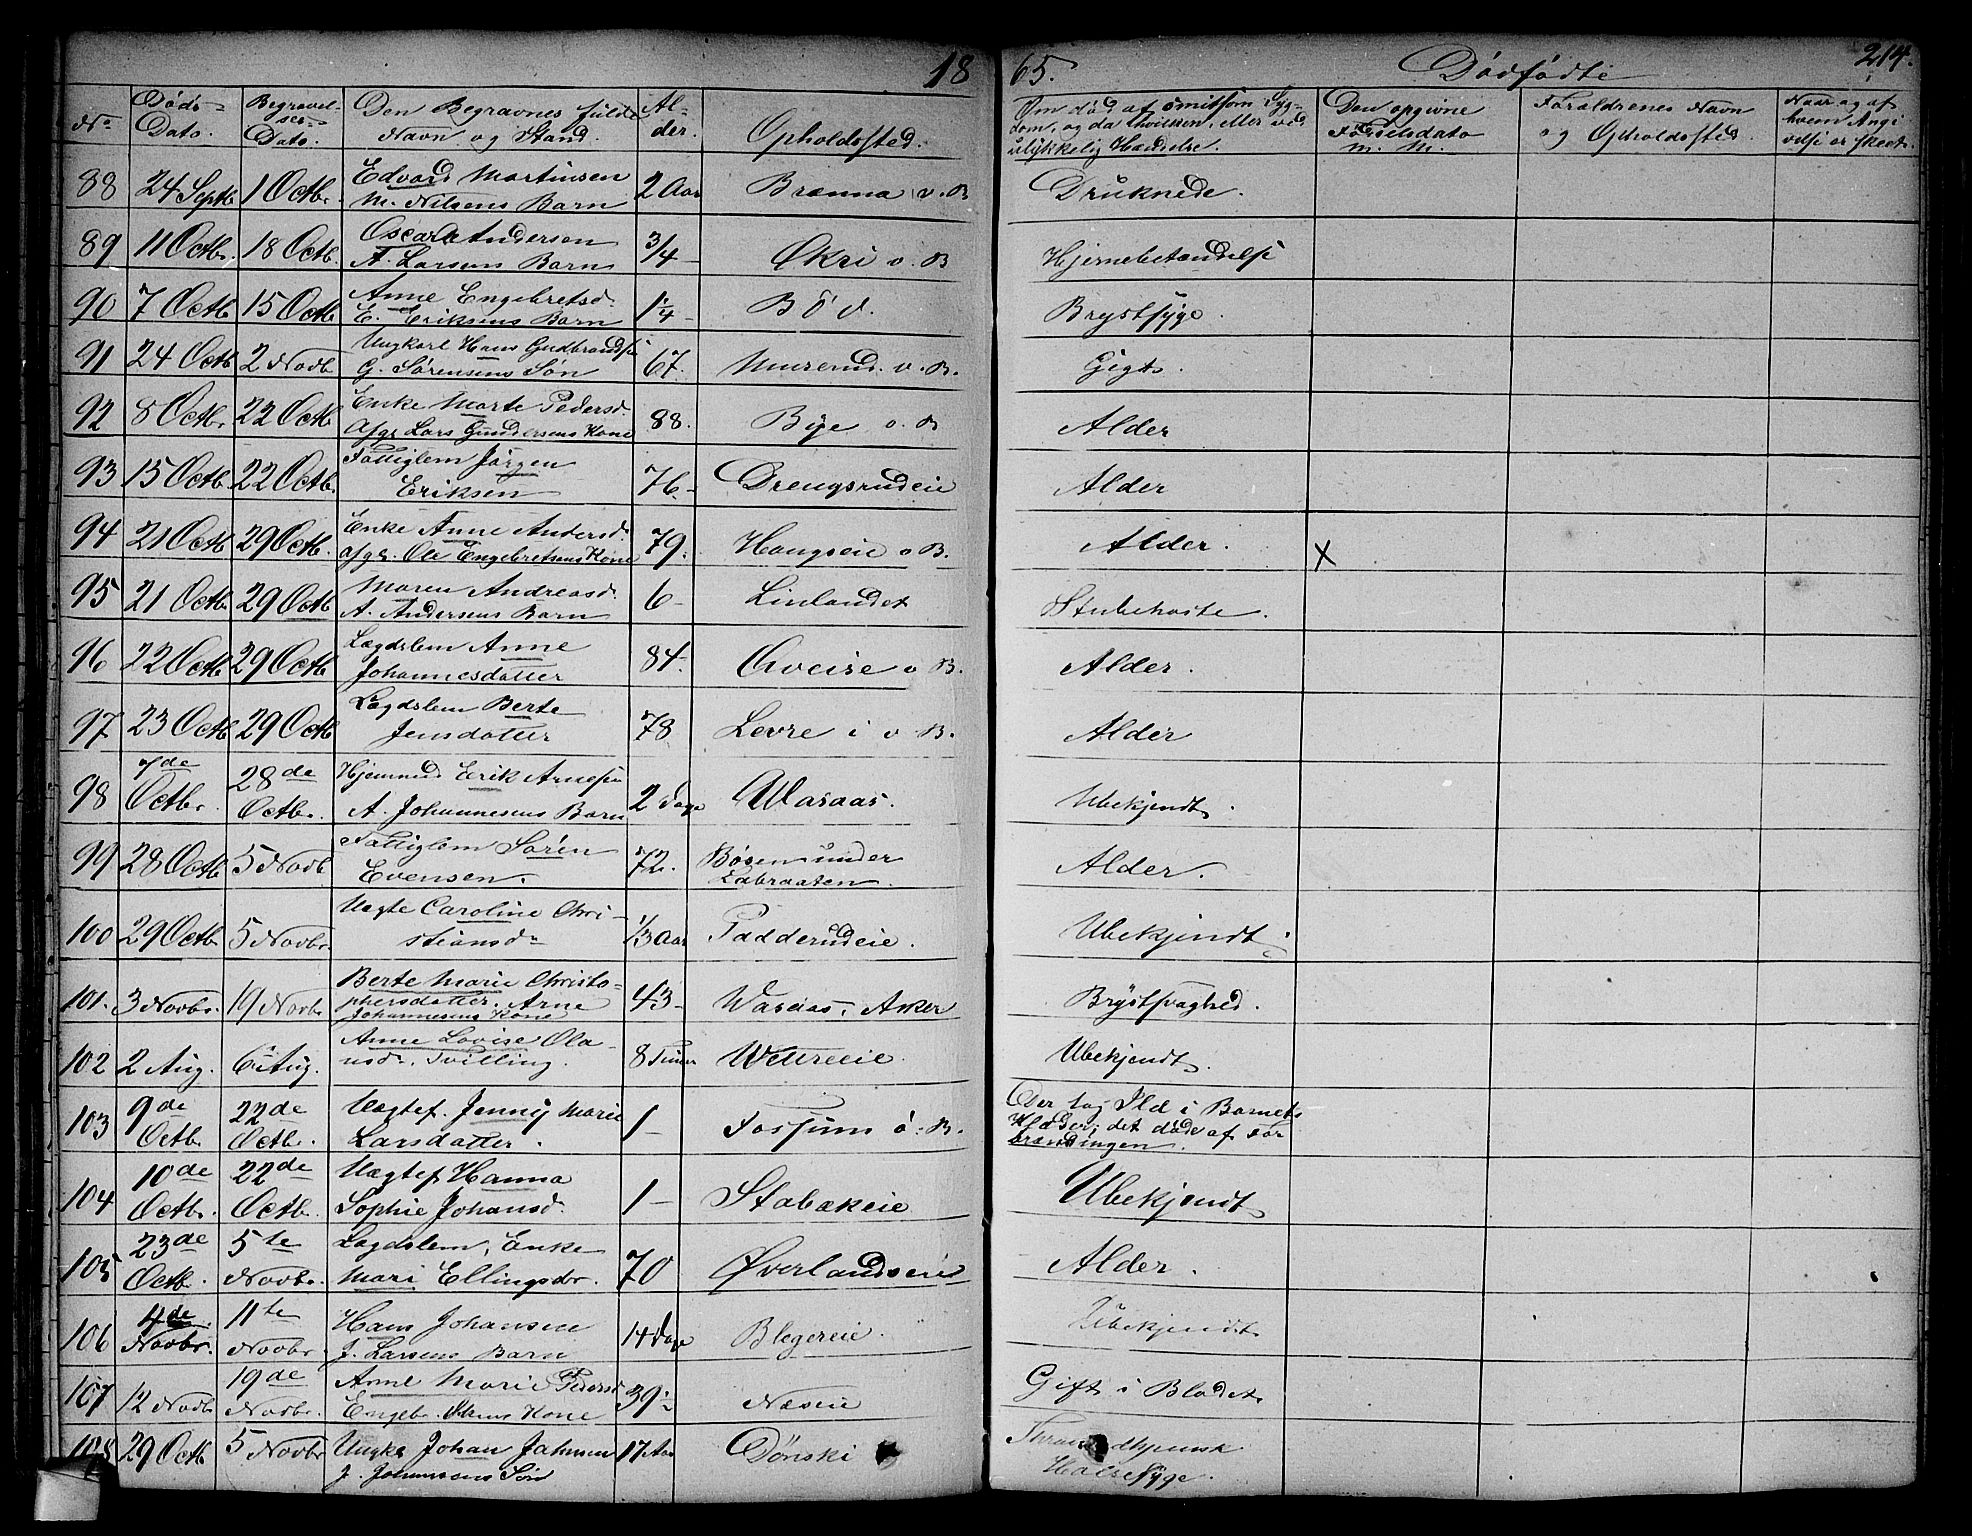 18 65. Dødfødte 214.
No Døds- Dato. Begravelses- Dato. Den Begravnes fulde Navn og Stand. Alder. Opholdssted. Om død af smitsom Sygdom, og da hvilken, eller ved ulykkelig Hændelse. Den opgivne Fødselsdato m. M. Forældrenes Navn og Opholdssted. Naar og af hvem Angivelse er skeet.
88 24 Septb 1 Octbr. Edvard Martinsen 2 Aar Brænna v. B Druknede.
M. Nilsens Barn
89 11 Octbr. 18 Octb. Oscar Andersen 3/4 - Økri v. B Hjernebetændelse
A. Larsens Barn
90 7 Octb 15 Octb Anne Engebretsd. 1 1/4 - Bö v. Brystsyge.
E. Eriksens Barn
91 24 Octb 2 Novb. Ungkarl Hans Gudbrandsen 67. Murerud. v. B. Gigt.
G. Sörensens Sön
92 8 Octbr. 22 Octb Enke Marte Pedersd. 88. Bye v. B Alder
Afgr Lars Gundersens Kone
93 15 Octb. 22 Octb. Fattiglem Jörgen 76- Drengsrudeie Alder
Eriksen
94 21 Octb 29 Octb. Enke Anne Andersd. 79. Haugseie v B. Alder. X
afgr. Ole Engebretsens Kone
95 21 Octbr 29 Octb Maren Andreasd. 6 - Linlandet Strubehoste.
A. Andersens Barn
96 22 Octb 29 Octb. Lægdslem Anne 84. v B. Alder.
Johannesdatter
97 23 Octb 29 Octb Lægdslem Berte 78 Levre i v B. Alder
Jensdatter
98 7de Octbr. 28de Octbr. Hjemmed Erik Arnesen 2 Dage Wasaas. Ubekjendt.
A. Johannesens Barn
99 28 Octb 5 Novb. Fattiglem Sören 72. Bösen under Alder.
Evensen. Labraaten.
100 29 Octb 5 Novbr. Uægte Caroline Chri- 1/3 Aar Padderudeie. Ubekjendt.
stiansd.
101. 3 Novbr. 19 Novbr. Berte Marie Christo- 43- Wasaas, Asker Brystsvaghed.
phersdatter. Arne
Johannesens Kone
102 2 Aug. 6 Aug. Anne Lovise Ola- 8 Timer Wettreeie. Ubekjendt.
nsd. Tvilling.
103 9de Octb. 22de Octbr. Uægtef. Jenny Marie 1 - Fossum ö. B. Der tog Ild i Barnets
Larsdatter. Klæder; det døde af For
brændingen.
104 10de Octbr. 22de Octb. Uægtef Hanna 1 - Stabækeie Ubekjendt
Sophie Johansd.
105 23de Octb. 5te Novbr. Lægdslem, Enke 70 Øverlandseie Alder.
Mari Ellingsdtr.
106 4de Novbr. 11te Novbr. Hans Johansen 14 Dage Blegereie. Ubekjendt
J. Larsens Barn
107 12 Novb. 19de Novbr. Anne Marie Pedersd 39- Næseie Gift i Blodet.
Engebr. Kone
108 29 Octb 5 Novbr Ungkr Johan 17 Aar Dönski
J. Johannesens Sön Halsesyge.